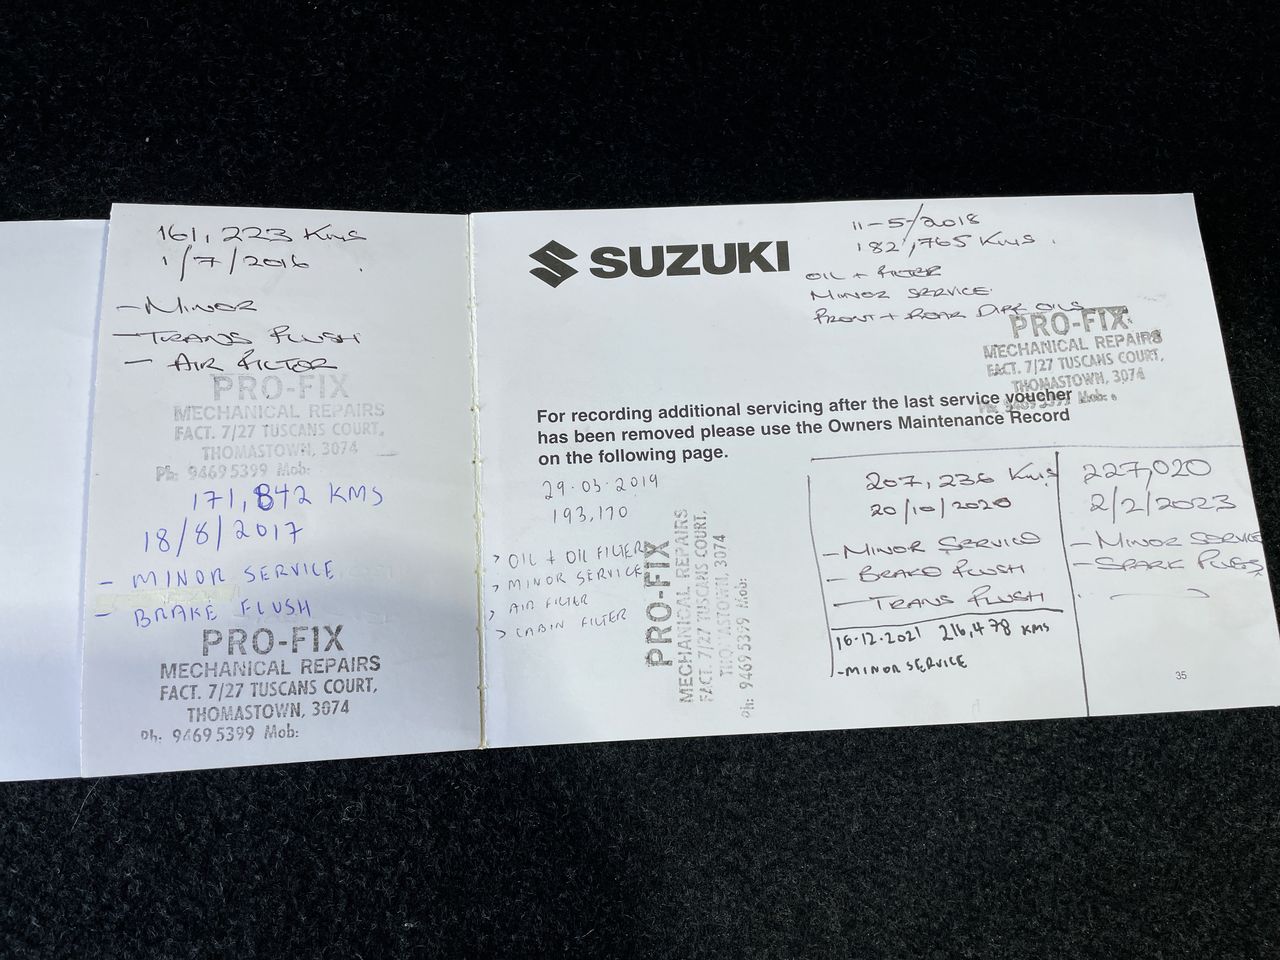 161,223 Kms
1/7/2016
- MINOR
- TRANS FLUSH
- AIR FILTER
PRO-FIX
MECHANICAL REPAIRS
FACT. 7/27 TUSCANS COURT,
THOMASTOWN, 3074
Ph: 94695399 Mob:
171,842 KMS
18/8/2017
- MINOR SERVICE
- BRAKE FLUSH
PRO-FIX
MECHANICAL REPAIRS
FACT. 7/27 TUSCANS COURT,
THOMASTOWN, 3074
Ph: 94695399 Mob:
SUZUKI
11-5/2018
182,765 Kms.
OIL + FILTER
MINOR SERVICE
FRONT + REAR DIFF OILS
PRO-FIX
MECHANICAL REPAIRS
FACT. 7/27 TUSCANS COURT,
THOMASTOWN, 3074
Ph: 94695399 Mob:
For recording additional servicing after the last service voucher
has been removed please use the Owners Maintenance Record
on the following page.
29.03.2019
193,170
> OIL + OIL FILTER
> MINOR SERVICE
> AIR FILTER
> CABIN FILTER
PRO-FIX
MECHANICAL REPAIRS
FACT. 7/27 TUSCANS COURT,
THOMASTOWN, 3074
Ph: 94695399 Mob:
207,236 Kms
20/10/2020
- MINOR SERVICE
- BRAKE FLUSH
- TRANS FLUSH
16-12-2021 216,478 KMS
- MINOR SERVICE
227,020
2/2/2023
- MINOR SERVICE
- SPARK PLUGS
35